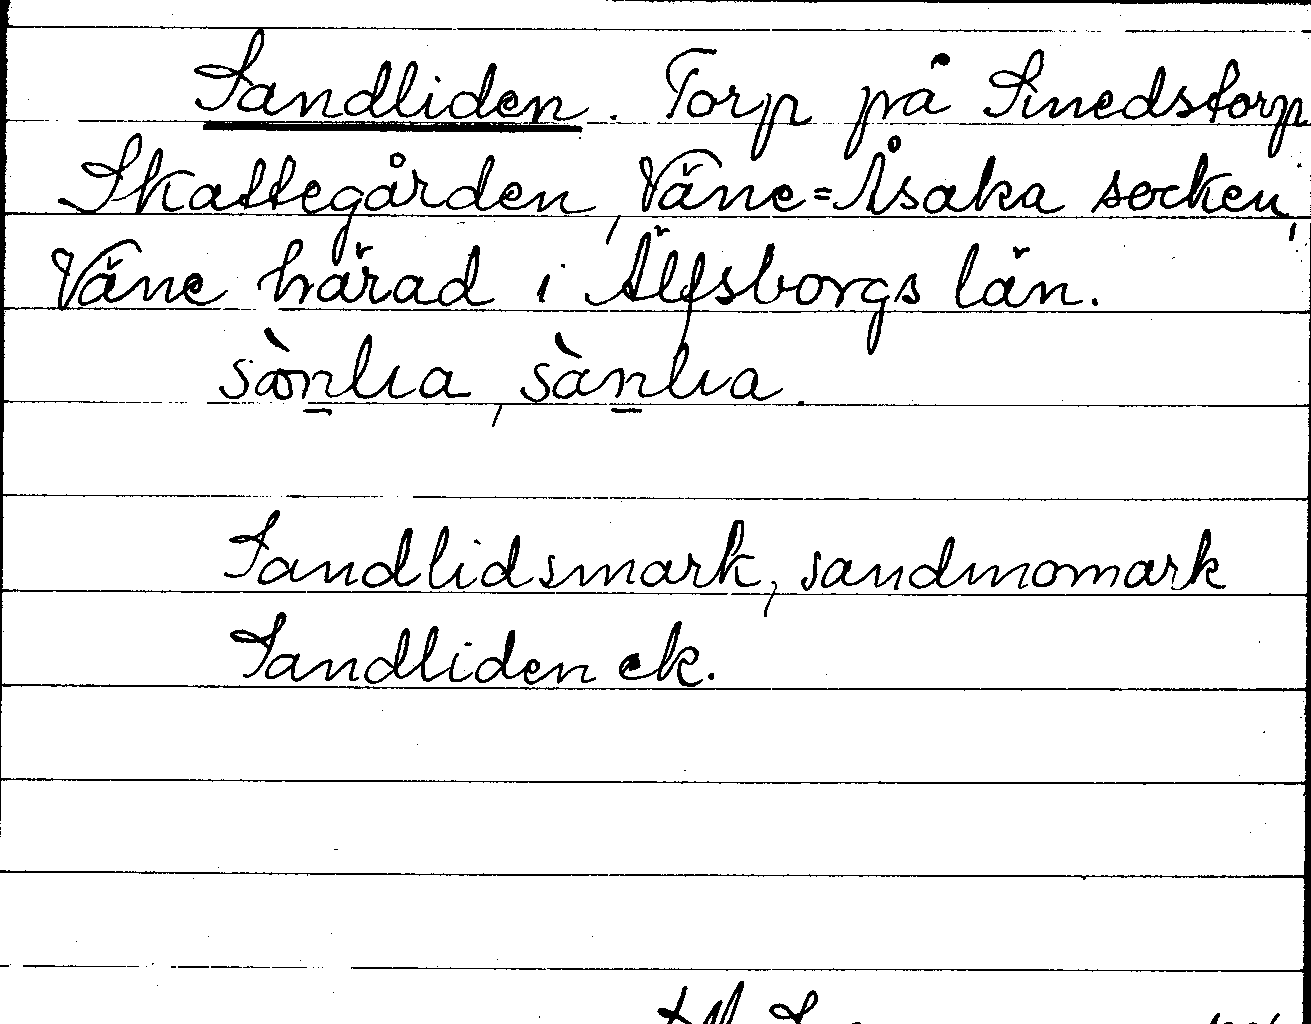 Sandliden. Torp på Smedstorp
Skattegården, Väne=Åsaka socken,
Väne härad i Älfsborgs län.
sànlıa, sànlıa.
Sandlidsmark, sandmomark
Sandliden ek.